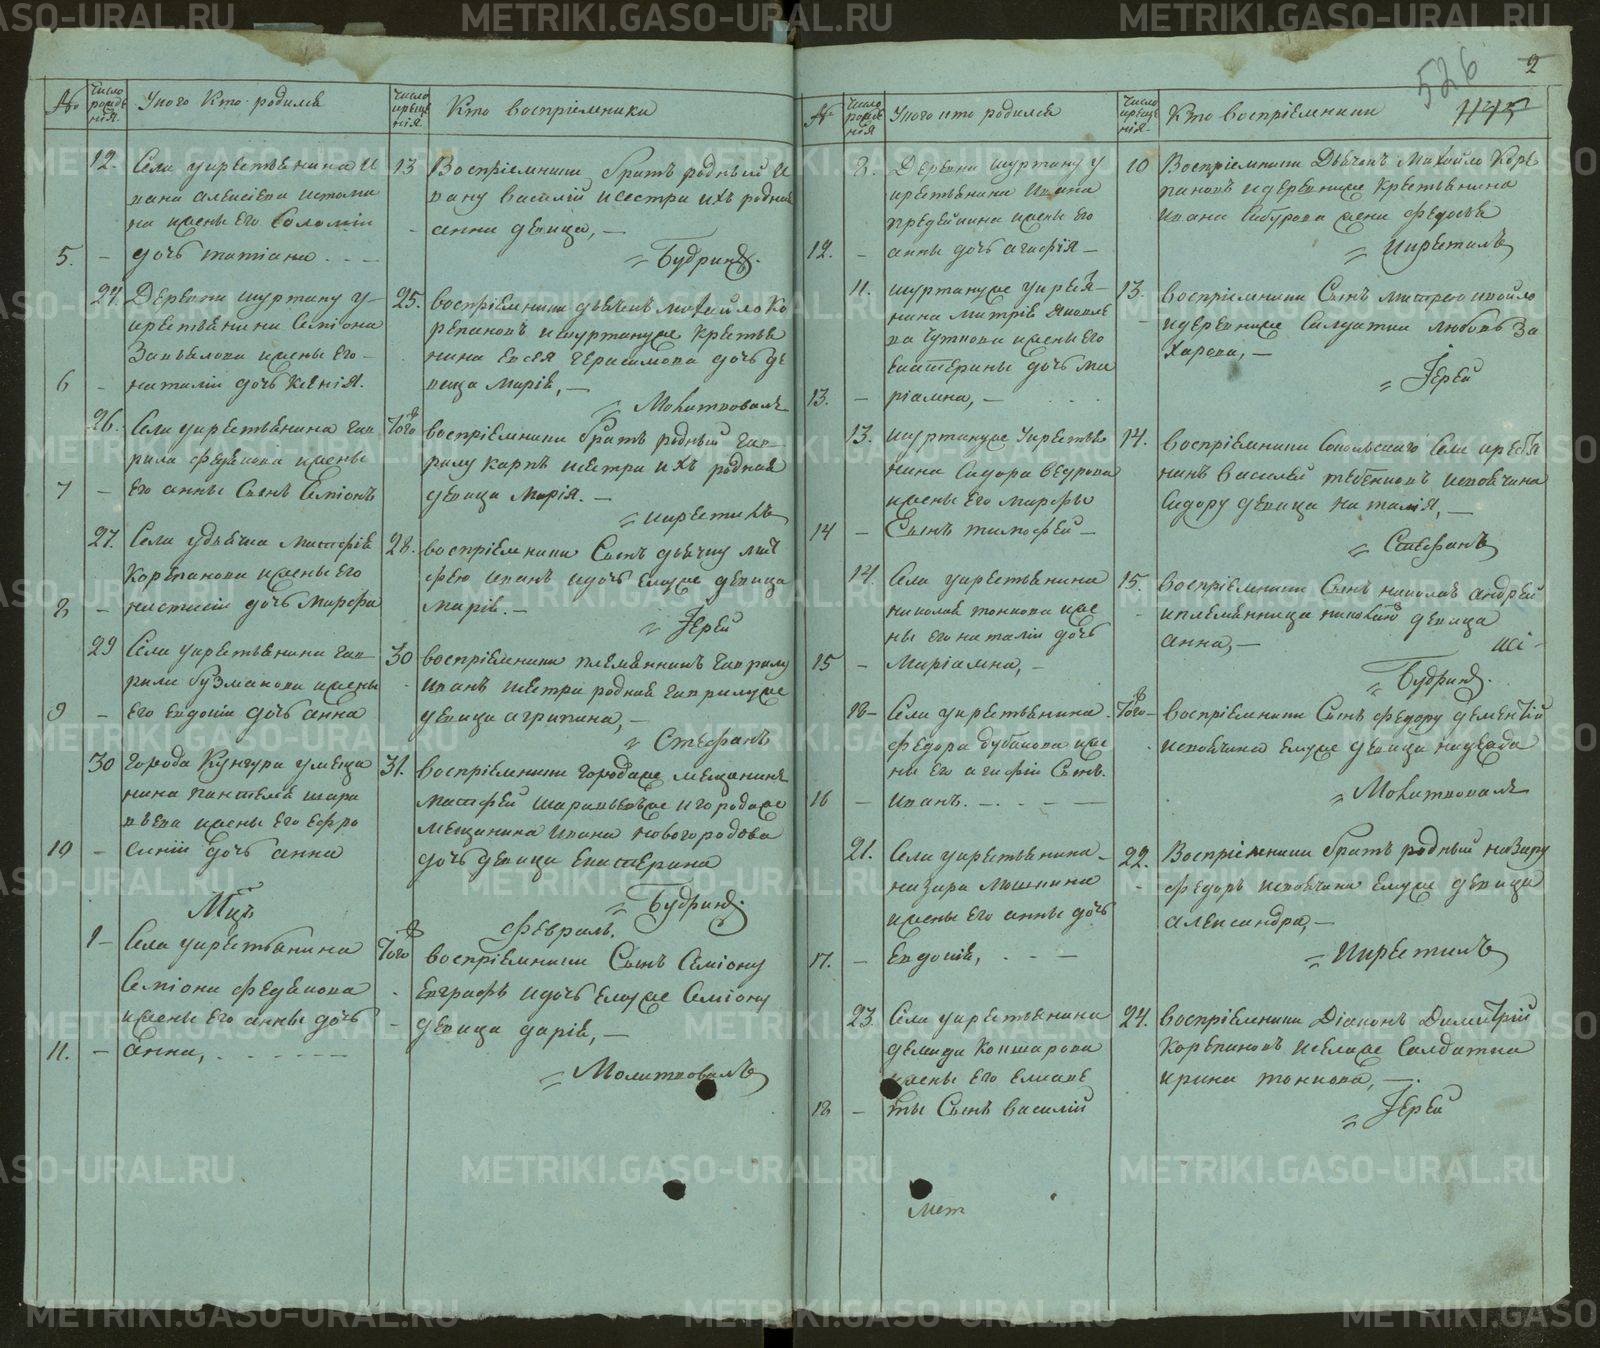 №
Число рожде нія.
У кого кто родился
Число креще нія.
Кто воспріемники
12. Села у крестьянина И
вана Алексѣева
на жены его Соломіи
5. — дочь татіана
13 Воспріемники братъ родный И
вану Василій и сестра ихъ родная
анна девица, —
Будринъ.
24. Деревни шуртану у
крестьянина Семіона
Завьялова жены его
6 — наталіи дочь ксенія.
25. воспріемники дьячекъ михайло Ко
репановъ и шуртануже крестья
нина Евсея Герасимова дочь де
вица марія, —
26. Села у крестьянина гав
рила федякова жены
7 — его анны Сынъ Семіонъ
того воспріемники братъ родный гав
рилу карпъ и сестра ихъ родная
девица Марія. —
27. Села у дьячка матфія
Корепанова жены его
8 — настасіи дочь Марфа
28. воспріемники Сынъ дьячку мат
фею иванъ и дочь ему же девица
марія. —
Іерей
29 Села у крестьянина гав
рила бузмакова жены
9 — его евдокіи дочь анна
30 воспріемники племянникъ гаврилу
иванъ и сестра родная гаврилу же
девица агрипина, —
Стефанъ
30 города Кунгура у меща
нина пантелея шара
пьева жены его ефро
10 — синіи дочь анна
31. воспріемники города же мещанинъ
матфей шарапьевъ же и города же
мещанина ивана новогородова
дочь девица екатерина
Будринъ.
Мцъ февраль.
1 — Села у крестьянина
Семіона федякова
жены его анны дочь
11. — анна,
того воспріемники Сынъ Семіону
Евграфъ и дочь ему же Семіону
девица дарія, —
Молитвовалъ
526
2
1145
№
Число рожде нія
У кого кто родился
Число креще нія.
Кто воспріемники
8. Деревни шуртану у
крестьянина ивана
жены его
12. — анны дочь агафія —
10 Воспріемники Дьячекъ Михайло Коре
пановъ и деревни же крестьянина
ивана Сабурова жена федосья
и крестилъ
11. шуртану же у крестья
нина Митрія Яковле
ва Чупкова жены его
екатерины дочь ма
13. — ріамна, —
13. воспріемники Сынъ
и деревни же Салдатка любовь За
харова, —
Іерей
13. шуртану же у крестья
нина Сидора
жены его марфы
14 — Сынъ тимофей —
14. воспріемники Сокольскаго Села крестья
нинъ Василей
Сидору девица наталія, —
Стефанъ
14. Села у крестьянина
николая тонкова же
ны его наталіи дочь
15 — Маріамна, —
15. воспріемники Сынъ николая андрей
и племянница николаю девица
анна, —
Будринъ.
18 — Села у крестьянина
федора дубакова же
ны его агафіи Сынъ.
16 — иванъ. —
того — воспріемники Сынъ федору дементій
и своячина ему же девица надежда
21. Села у крестьянина
назара мышкина
жены его анны дочь
17. — Евдокія,
22. Воспріемники братъ родный назару
федоръ и своячина ему же девица
александра, —
и крестилъ
23. Села у крестьянина
демида Коншарова
жены его елисаве
18 — ты Сынъ василій
24. воспріемники Діаконъ Димитрій
Корепановъ и села же Салдатка
ирина тонкова, —
Іерей
мет
METRIKI.GASO-URAL.RU